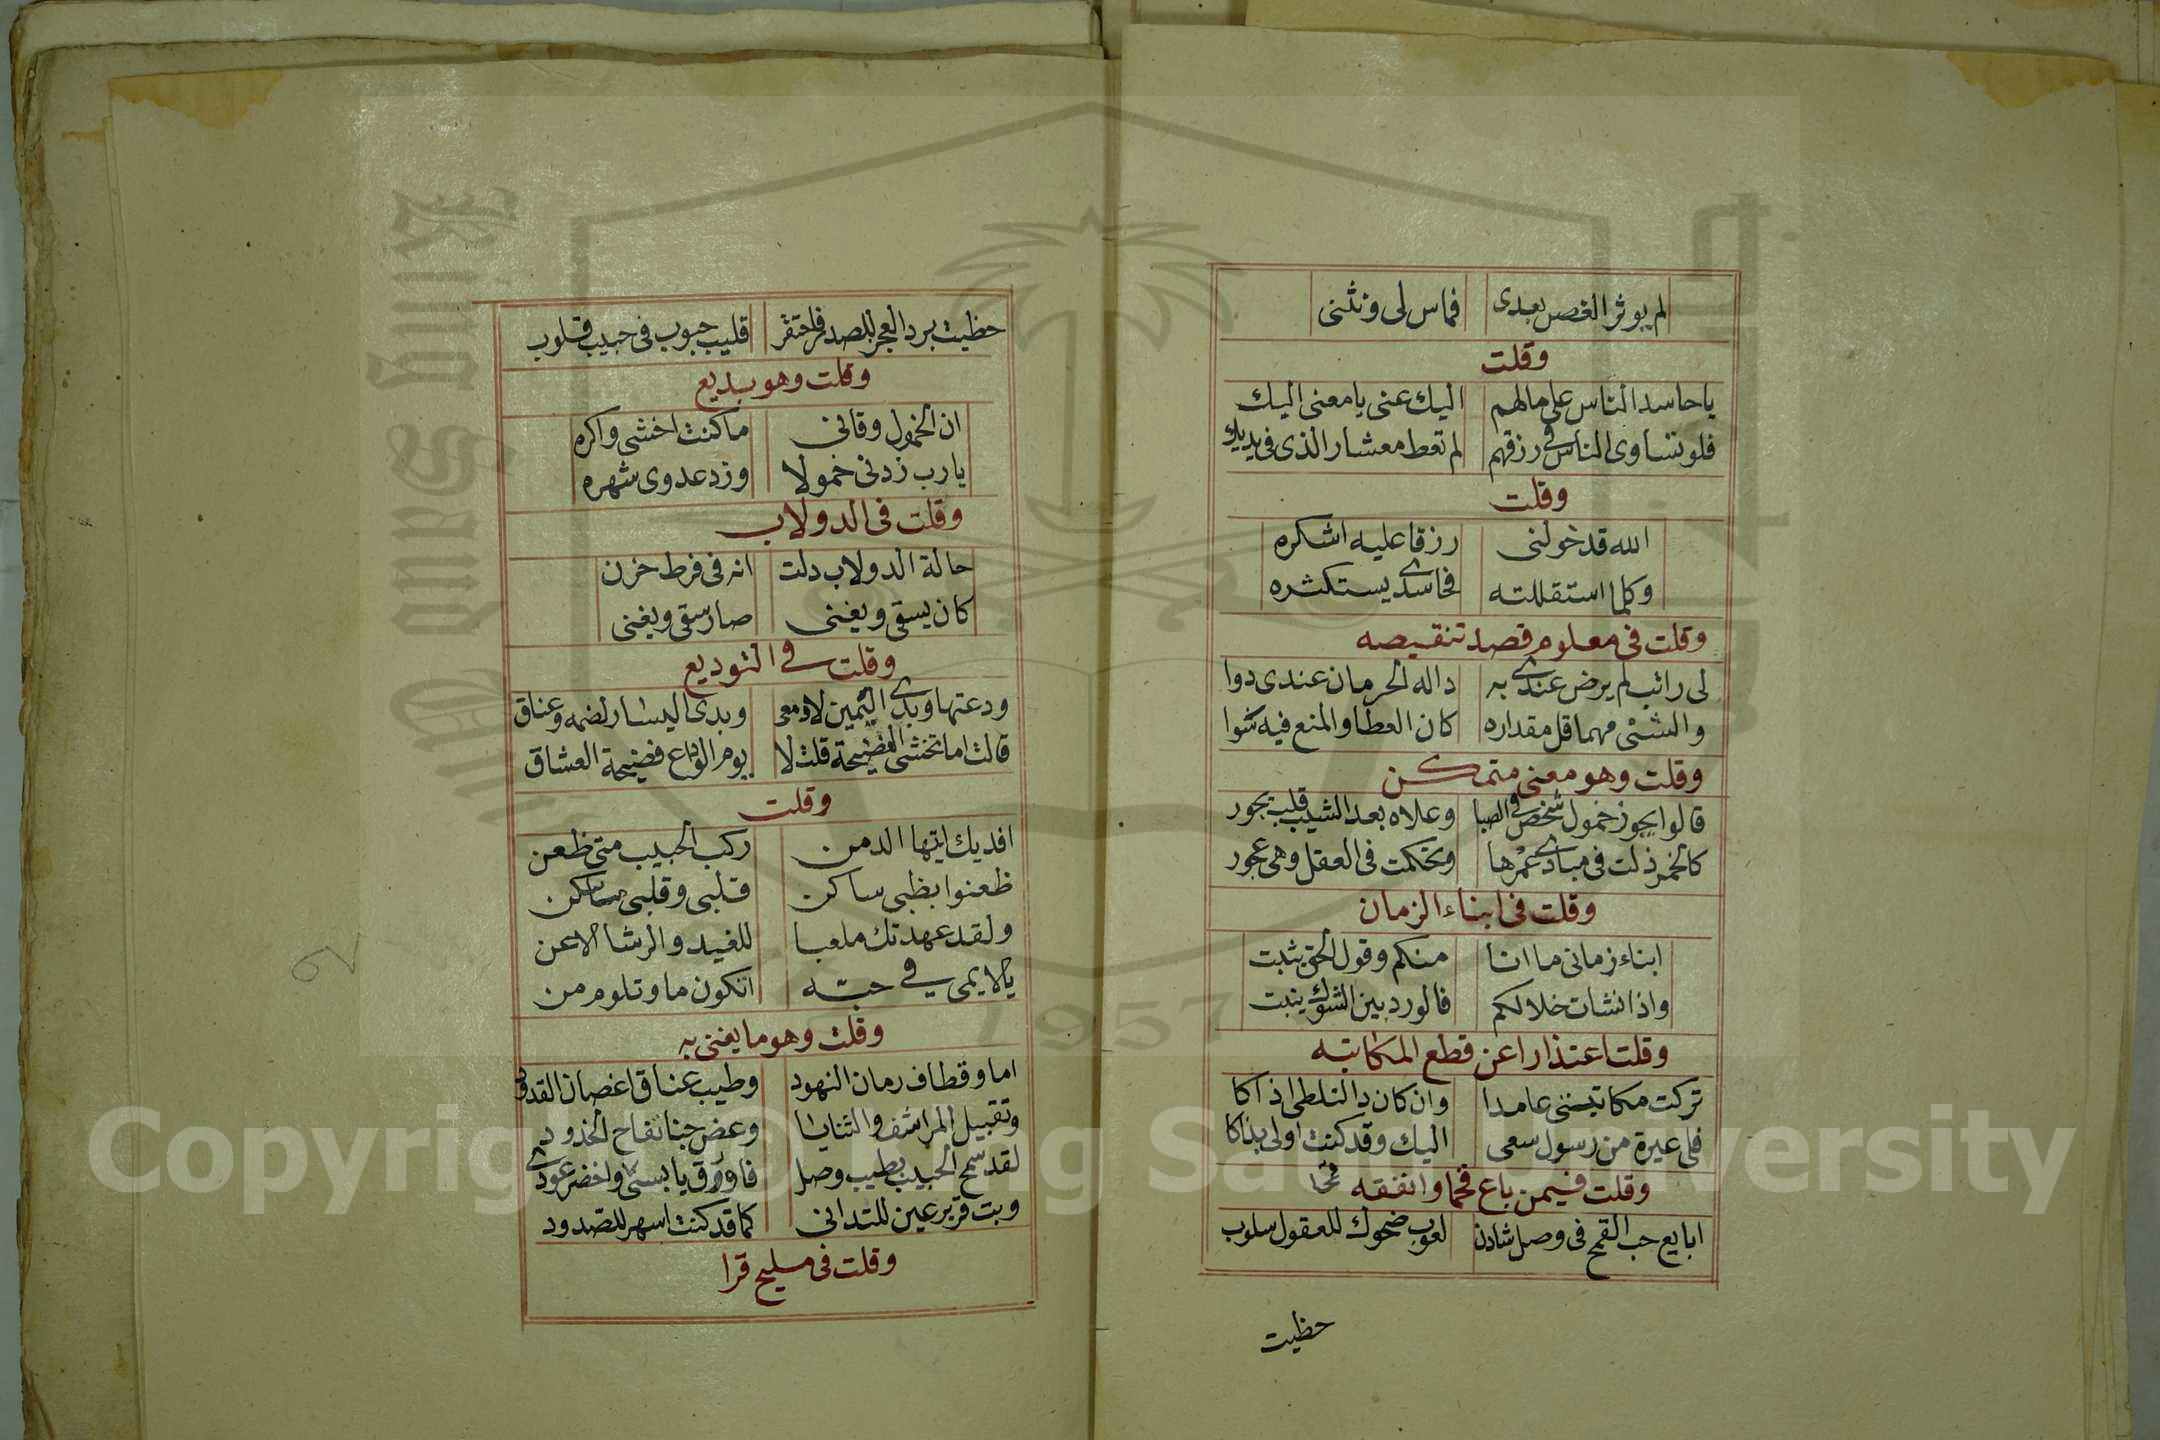 لم يوثر الغصن بعدى فماس لى ونثنى
وقلت
يا حاسد الناس على مالهم اليك عنى يا معنى اليك
فلو تساوى الناس فى رزقهم لم تعط معشار الذى فى يديك
وقلت
الله قد خولنى رزقا عليه اشكره
وكلما استقللته فحاسدى يستكثره
وقلت فى معلوم قصد تنقيصه
لى راتب لم يرض عندى به دا له الحرمان عندى دوا
والشئ مهما قل مقداره كان العطا والمنع فيه سوا
وقلت وهو معنى متمكن
قالوا يجوز خمول شخص فى الصبا وعلاه بعد الشيب قلب يجور
كالخمر ذلت فى مبادى عمرها وتحكمت فى العقل وهى عجوز
وقلت فى ابناء الزمان
ابناء زمانى ما انا منكم وقول الحق يثبت
واذا نشات خلالكم فالورد بين الشوك ينبت
وقلت اعتذارا عن قطع المكاتبه
تركت مكاتبتى عامدا وان كان التلطى اذا كا
فلى غيرة من رسول سعى اليك وقد كنت اولى بذاكا
وقلت فيمن باع قمحا وانفقه
ابايع حب القمح فى وصل شادن لعوب ضحوك للعقول سلوب
حظيت
حظيت ببرد العجز للصدر فاحتقر قليب حبوب فى حبيب قلوب
وقلت وهو بديع
ان الخمول وقانى ما كنت اخشى واكره
يا رب زدنى خمولا وزد عدوى شهره
وقلت فى الدولاب
حالة الدولاب دلت انه فى فرط حزن
كان يسقى ويغنى صار سقى ويغنى
وقلت فى التوديع
ودعتها ويدى اليمين لادمعى ويدى اليسار لضمه وعناق
قالت اما تخشى الفضيحة قلت لا يوم الوداع فضيحة العشاق
وقلت
افديك ايتها الدمن ركب الحبيب متى ظعن
ظعنوا بظبى ساكن قلبى وقلبى ما سكن
ولقد عهدتك ملعبا للغيد والرشا الاغن
يا لايمى فى حبه اتكون ما وتلوم من
وقلت وهو ما يغنى به
اما وقطاف رمان النهود وطيب عناق اغصان القدود
وتقبيل المراشف والثنايا وعض جنا تفاح الخدود
لقد سمح الحبيب بطيب وصل فاورق يابسى واخضر عودى
وبت قرير عين للتدانى كما قد كنت اسهر للصدود
وقلت فى مليح قرا
King Saud University
1957
Copyright © King Saud University